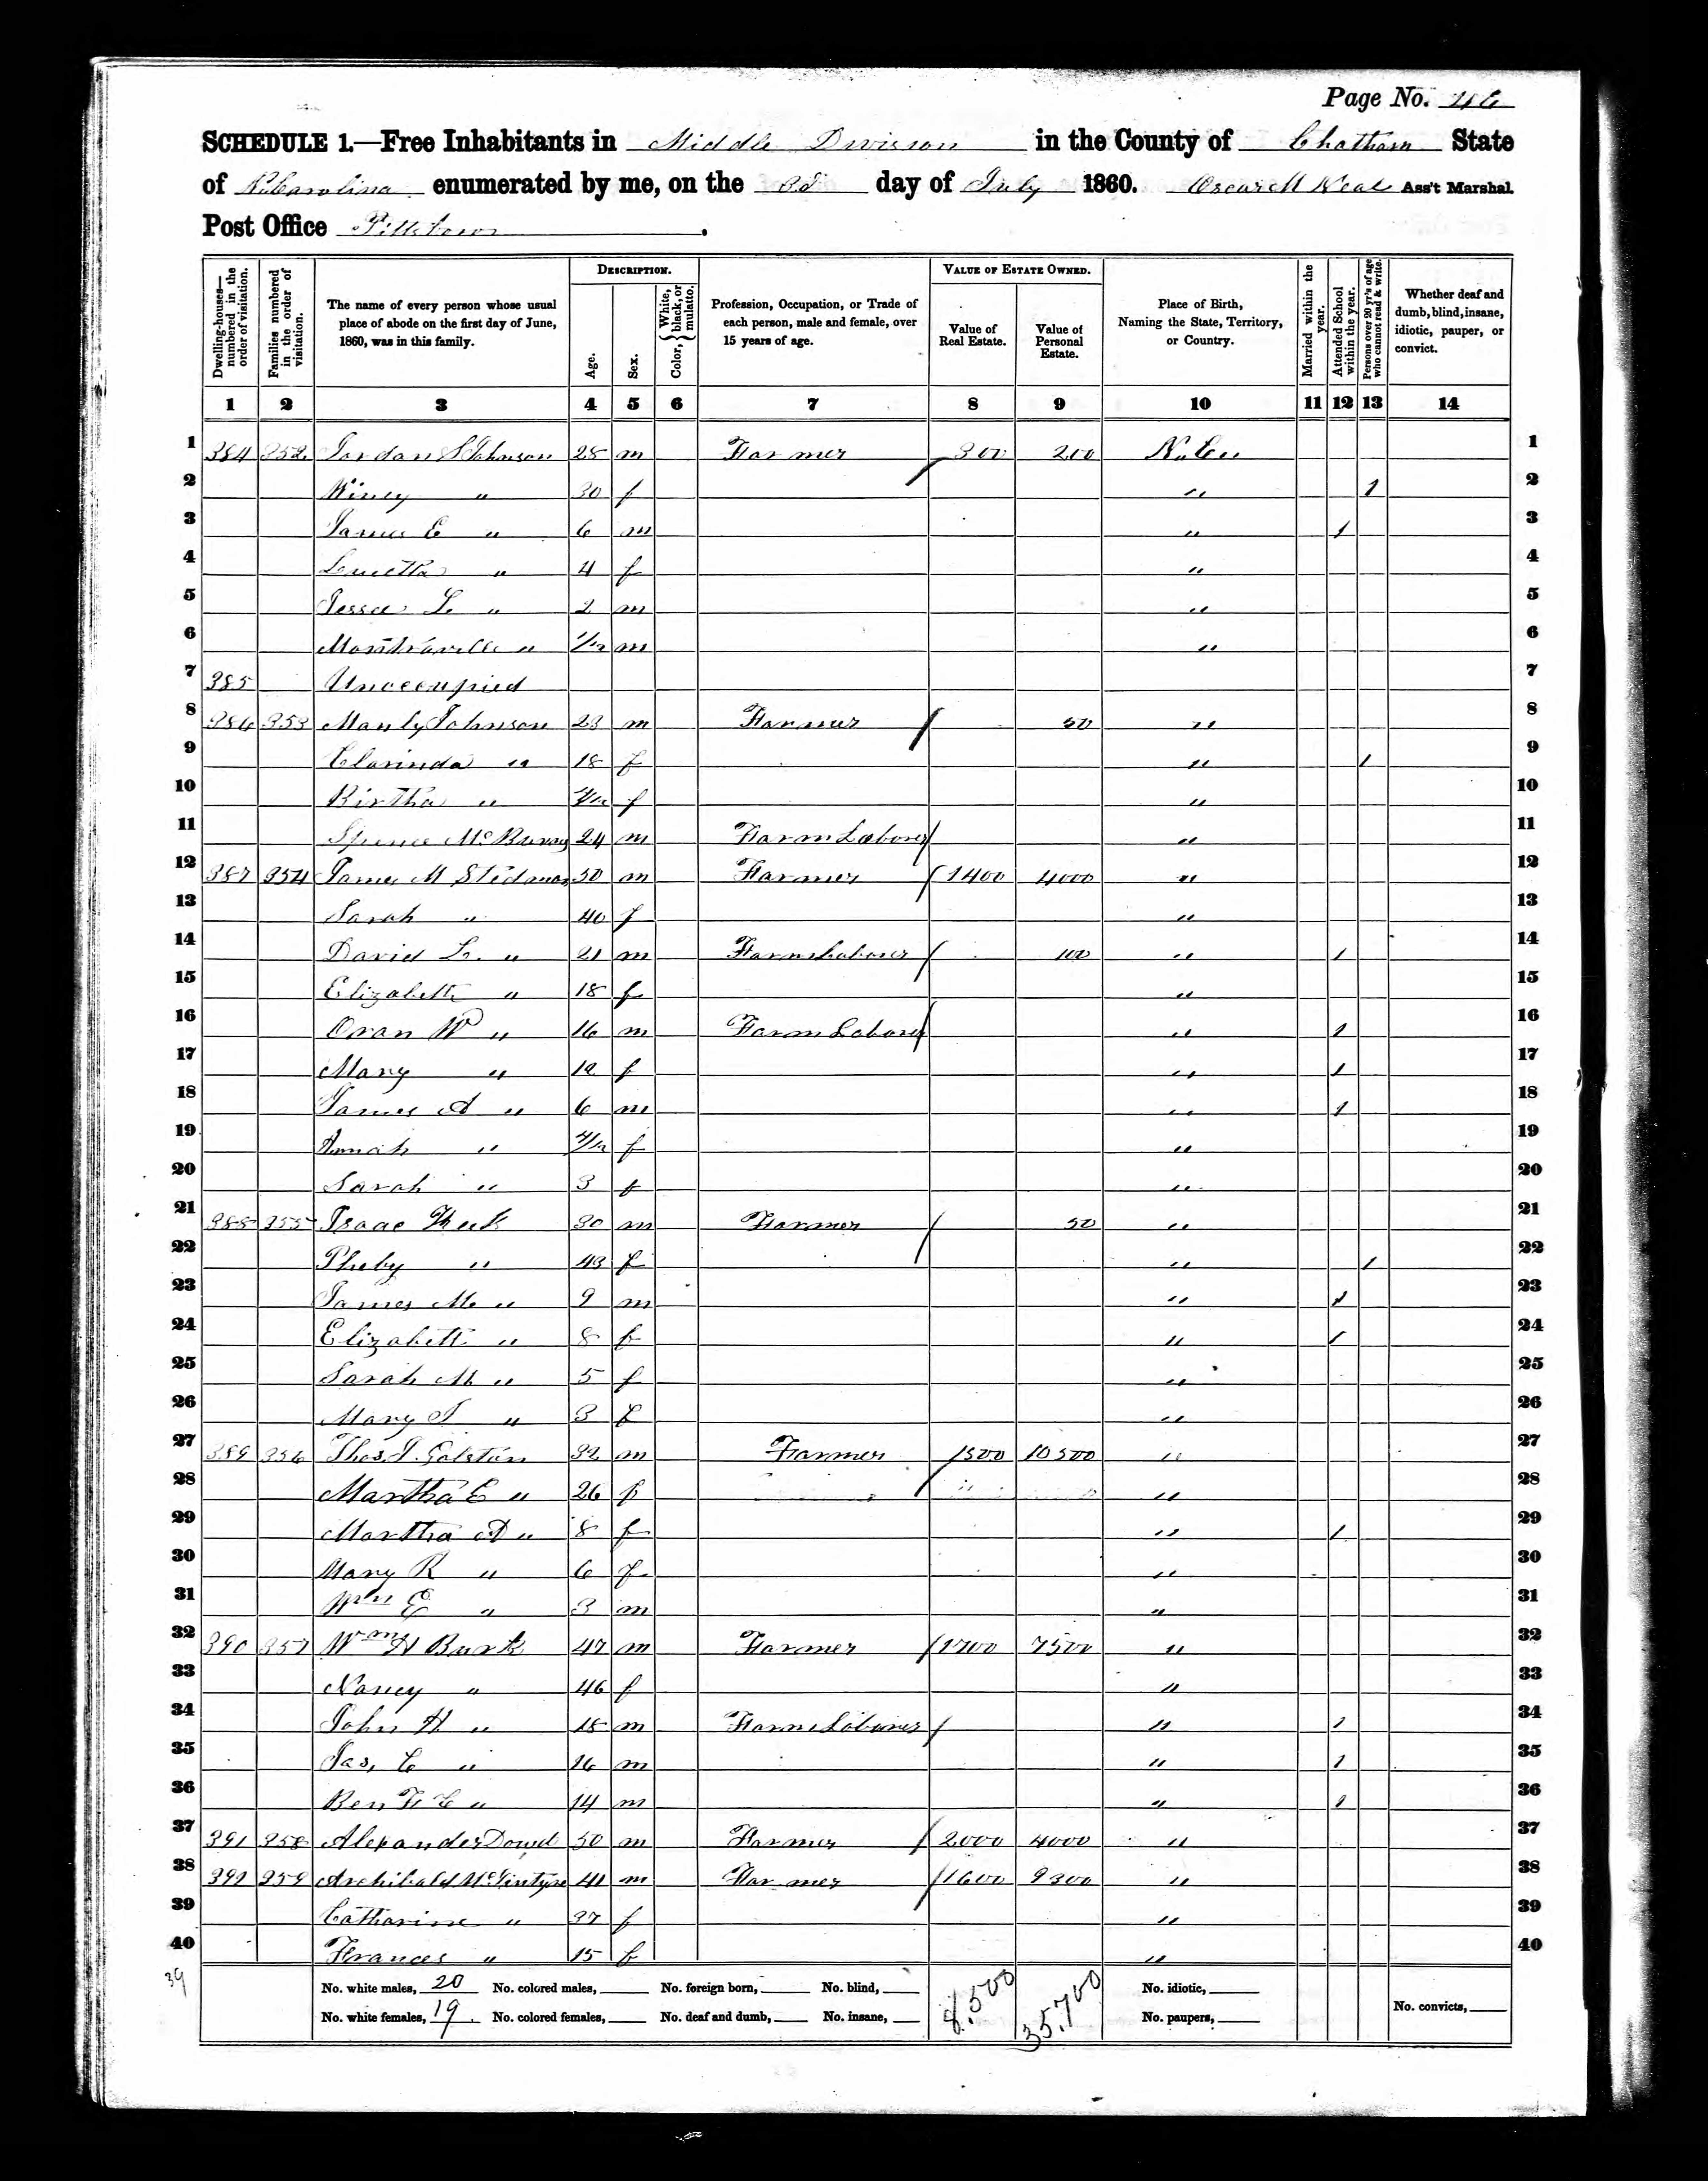 Page No. 46
SCHEDULE 1.—Free Inhabitants in Middle Division in the County of Chatham State
of N. Carolina enumerated by me, on the 3d day of July 1860. Oscar M Neal Ass't Marshal
Post Office Pittsboro.
Dwelling-houses—numbered in the order of visitation.
Families numbered in the order of visitation.
The name of every person whose usual place of abode on the first day of June, 1860, was in this family.
DESCRIPTION.
Age.
Sex.
Color, { White, black, or mulatto.
Profession, Occupation, or Trade of each person, male and female, over 15 years of age.
VALUE OF ESTATE OWNED.
Value of Real Estate.
Value of Personal Estate.
Place of Birth, Naming the State, Territory, or Country.
Married within the year.
Attended School within the year.
Persons over 20 yr's of age who cannot read & write.
Whether deaf and dumb, blind, insane, idiotic, pauper, or convict.
1 2 3 4 5 6 7 8 9 10 11 12 13 14
1 384 352 Jordan S Johnson 28 m Farmer 300 200 N. C. 1
2 Winey " 30 f " 1 2
3 James E " 6 m " 1 3
4 " 4 f " 4
5 Jesse L " 2 m " 5
6 " 1/12 m " 6
7 385 Unoccupied 7
8 386 353 Manly Johnson 23 m Farmer 50 " 8
9 Clarinda " 18 f " 1 9
10 Birtha " f " 10
11 24 m Farm Laborer " 11
12 387 354 James M Stedman 50 m Farmer 1400 4000 " 12
13 Sarah " 40 f " 13
14 David L. " 21 m Farm Laborer 100 " 1 14
15 Elizabeth " 18 f " 15
16 Oran W " 16 m Farm Laborer " 1 16
17 Mary " 12 f " 1 17
18 James A " 6 m " 1 18
19 " 4/12 f " 19
20 Sarah " 3 f " 20
21 388 355 Isaac 30 m Farmer 50 " 21
22 Pheby " 43 f " 1 22
23 James M. " 9 m " 1 23
24 Elizabeth " 8 f " 1 24
25 Sarah M " 5 f " 25
26 Mary J " 3 f " 26
27 389 356 Thos. J. 32 m Farmer 1500 10500 " 27
28 Martha E " 26 f " 28
29 Martha A " 8 f " 1 29
30 Mary R " 6 f " 30
31 Wm E " 3 m " 31
32 390 357 Wm H Burk 47 m Farmer 1700 7500 " 32
33 Nancy " 46 f " 33
34 John H " 18 m Farm Laborer " 1 34
35 Jas. C " 16 m " 1 35
36 Ben F C " 14 m " 1 36
37 391 358 Alexander Dowd 50 m Farmer 2000 4000 " 37
38 392 359 Archibald McIntyre 41 m Farmer 1600 9300 " 38
39 Catharine " 37 f " 39
40 Frances " 15 f " 40
39
No. white males, 20 No. colored males, No. foreign born, No. blind, 8.500 35.700 No. idiotic,
No. white females, 19. No. colored females, No. deaf and dumb, No. insane, No. paupers, No. convicts,